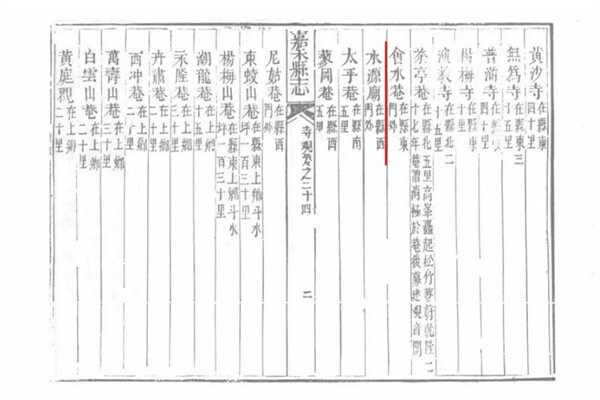 黃沙寺 在縣東四十里
無為寺 在縣東三十五里
普滿寺 在縣 四十里
楊梅寺 在縣 十里
寺 在縣北二十五里
茶亭菴 在縣北五里高峯矗起松竹蓊蔚乾隆二十七年菴謂清極於菴後募建觀音閣
會水菴 在縣東門外
水源廟 在縣西門外
太平菴 在縣南五里
蒙岡菴 五里
嘉禾縣志
寺觀 卷之二十四
二
尼姑菴 在縣西門外
東蛟山菴 在縣東上鄉斗水坪一百三十里
楊梅山菴 在縣東上鄉斗水坪一百三十里
湖龍菴 十五里
永隆菴 三十里
卉肅菴 在上鄉三十里
西冲菴 在上鄉二十里
萬壽山菴 在上鄉三十里
白雲山菴 在上鄉二十里
黃庭觀 在上鄉二十里